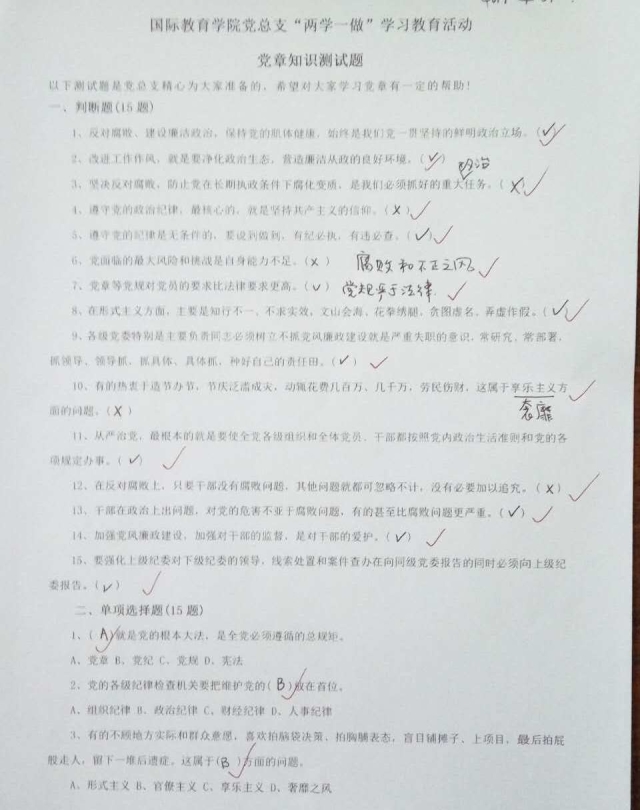 国际教育学院党总支“两学一做”学习教育活动
党章知识测试题
以下测试题是党总支精心为大家准备的，希望对大家学习党章有一定的帮助！
一、判断题(15题)
1、反对腐败、建设廉洁政治，保持党的肌体健康，始终是我们党一贯坚持的鲜明政治立场。(✓)
2、改进工作作风，就是要净化政治生态，营造廉洁从政的良好环境。(✓)
政治
3、坚决反对腐败，防止党在长期执政条件下腐化变质，是我们必须抓好的重大任务。(X)
4、遵守党的政治纪律，最核心的，就是坚持共产主义的信仰。(X)
5、遵守党的纪律是无条件的，要说到做到，有纪必执，有违必查。(✓)
6、党面临的最大风险和挑战是自身能力不足。(X) 腐败和不正之风
7、党章等党规对党员的要求比法律要求更高。(✓) 党规严于法律
8、在形式主义方面，主要是知行不一、不求实效，文山会海、花拳绣腿，贪图虚名、弄虚作假。(✓)
9、各级党委特别是主要负责同志必须树立不抓党风廉政建设就是严重失职的意识，常研究、常部署，
抓领导、领导抓，抓具体、具体抓，种好自己的责任田。(✓)
10、有的热衷于造节办节，节庆泛滥成灾，动辄花费几百万、几千万，劳民伤财，这属于享乐主义方
面的问题。(X) 奢靡
11、从严治党，最根本的就是要使全党各级组织和全体党员、干部都按照党内政治生活准则和党的各
项规定办事。(✓)
12、在反对腐败上，只要干部没有腐败问题，其他问题就都可忽略不计，没有必要加以追究。(X)
13、干部在政治上出问题，对党的危害不亚于腐败问题，有的甚至比腐败问题更严重。(✓)
14、加强党风廉政建设，加强对干部的监督，是对干部的爱护。(✓)
15、要强化上级纪委对下级纪委的领导，线索处置和案件查办在向同级党委报告的同时必须向上级纪
委报告。(✓)
二、单项选择题(15题)
1、(A)就是党的根本大法，是全党必须遵循的总规矩。
A、党章 B、党纪 C、党规 D、宪法
2、党的各级纪律检查机关要把维护党的(B)放在首位。
A、组织纪律 B、政治纪律 C、财经纪律 D、人事纪律
3、有的不顾地方实际和群众意愿，喜欢拍脑袋决策、拍胸脯表态，盲目铺摊子、上项目，最后拍屁
股走人，留下一堆后遗症，这属于(B)方面的问题。
A、形式主义 B、官僚主义 C、享乐主义 D、奢靡之风